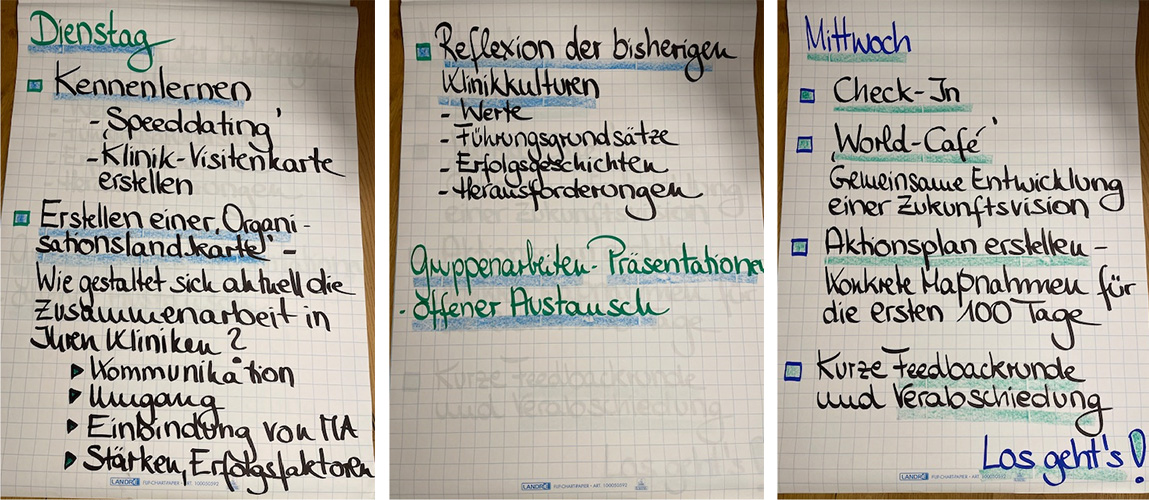 Dienstag
Kennenlernen
- 'Speeddating'
- Klinik-Visitenkarte
erstellen
Erstellen einer 'Organi-
sationslandkarte' -
Wie gestaltet sich aktuell die
Zusammenarbeit in
Ihren Kliniken?
Kommunikation
Umgang
Einbindung von MA
Stärken, Erfolgsfaktoren
LANDRÉ FLIP-CHARTPAPIER - ART. 100050592
Reflexion der bisherigen
Klinikkulturen
- Werte
- Führungsgrundsätze
- Erfolgsgeschichten
- Herausforderungen
Gruppenarbeiten - Präsentationen
- offener Austausch
LANDRÉ FLIP-CHARTPAPIER - ART. 100050592
Mittwoch
Check-In
'World-Café'
Gemeinsame Entwicklung
einer Zukunftsvision
Aktionsplan erstellen -
Konkrete Maßnahmen für
die ersten 100 Tage
Kurze Feedbackrunde
und Verabschiedung
Los geht's!
LANDRÉ FLIP-CHARTPAPIER - ART. 100050592